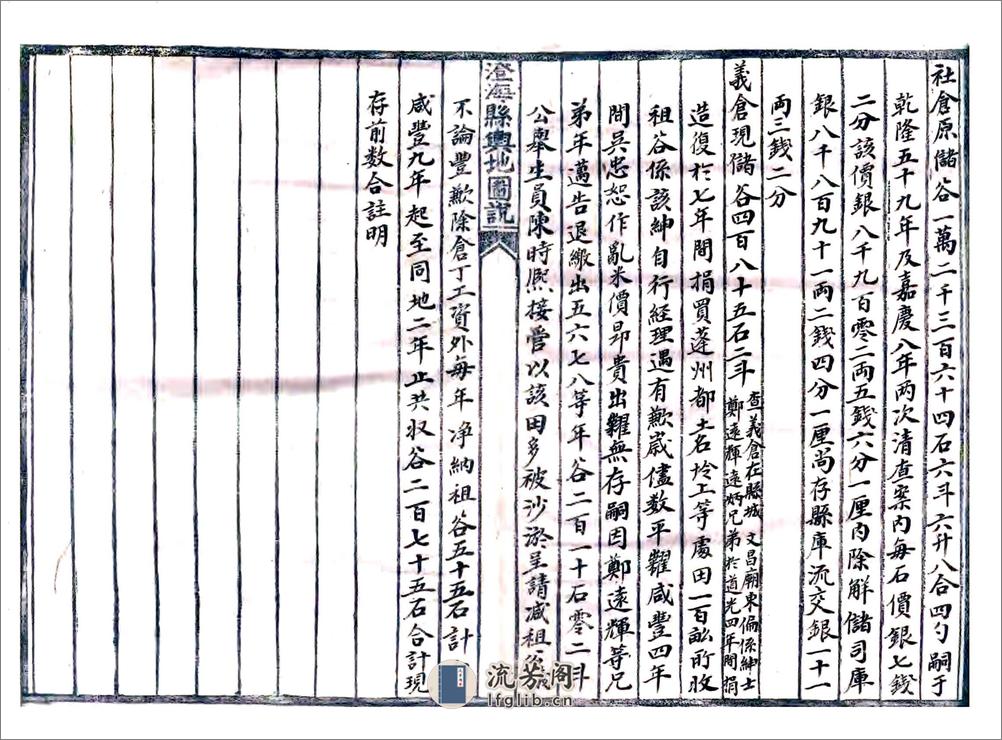 社倉原儲谷一萬二千三百六十四石六斗六升八合四勺嗣于
乾隆五十九年及嘉慶八年两次清查案內每石價銀七錢
二分該價銀八千九百零二両五錢六分一厘內除解儲司庫
銀八千八百九十一両二錢四分一厘尚存縣庫流交銀一十一
両三錢二分
義倉現儲谷四百八十五石二斗
查義倉在縣城 文昌廟東偏係紳士
鄭遠輝遠炳兄弟於道光四年間捐
造復於七年間捐買蓬州都土名坽上等處田一百畝所收
租谷係該紳自行經理遇有歉歲儘数平糶咸豐四年
間吳忠恕作亂米價昂貴出糶無存嗣因鄭遠輝等兄
弟年邁告退繳出五六七八等年谷二百一十石零二斗
公舉生員陳時熙接管以該田多被沙淤呈請减租
澄海縣輿地圖說
不論豐歉除倉丁工資外每年净納租谷五十五石計
咸豐九年起至同地二年止共収谷二百七十五石合計現
存前数合註明
流芳阁
lfglib.cn